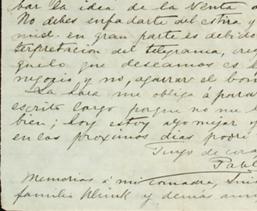 bar la idea de la venta a
No debes enfadarte del otra y
mid- en gran parte es debido
terpretacion del telegrama, res
guelo que deseamos es
negocio y no, agarrar el bon
La idea me obliga á para
escrito largo porque no me
bien; hoy estoy algo mejor y
en los proximos dias podré
Tuyo de cor
Pabl
Memorias á mi comadre,
familia Klinck y demás am